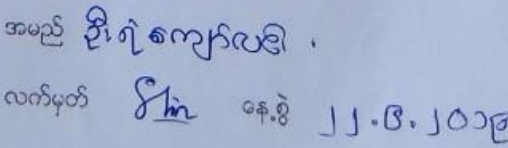 အမည် ဦးရဲကျော်လ၏ .
လက်မှတ် နေ့စွဲ ၂၂.၆.၂၀၁၉